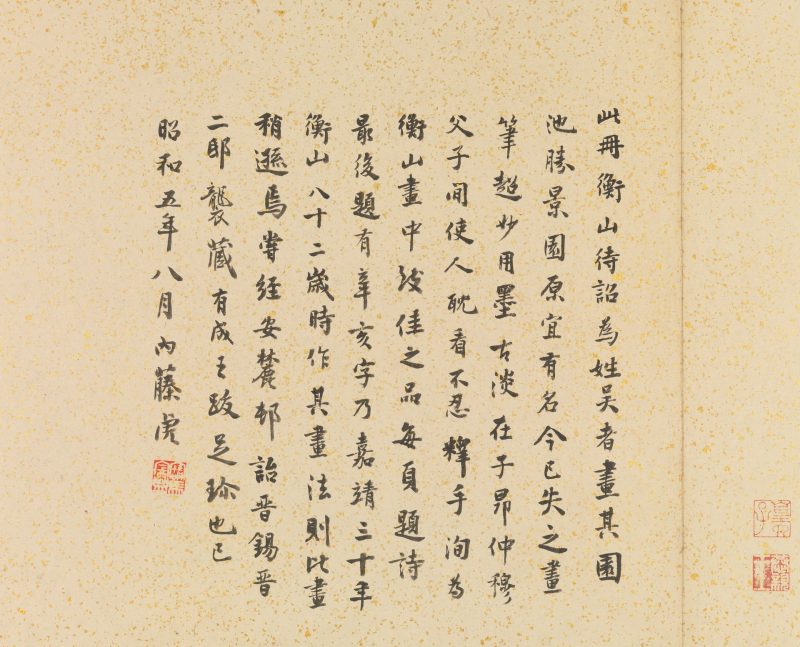 此冊衡山待詔為姓吳者畫其園
池勝景園原宜有名今已失之畫
筆超妙用墨古淡在子昂仲穆
父子間使人耽看不忍釋手洵為
衡山畫中致佳之品每頁題詩
最後題有辛亥字乃嘉靖三十年
衡山八十二歲時作其畫法則此畫
稍遜焉嘗經安麓邨詒晉錫晉
二邸襲藏有成王跋足珍也已
昭和五年八月內藤虎